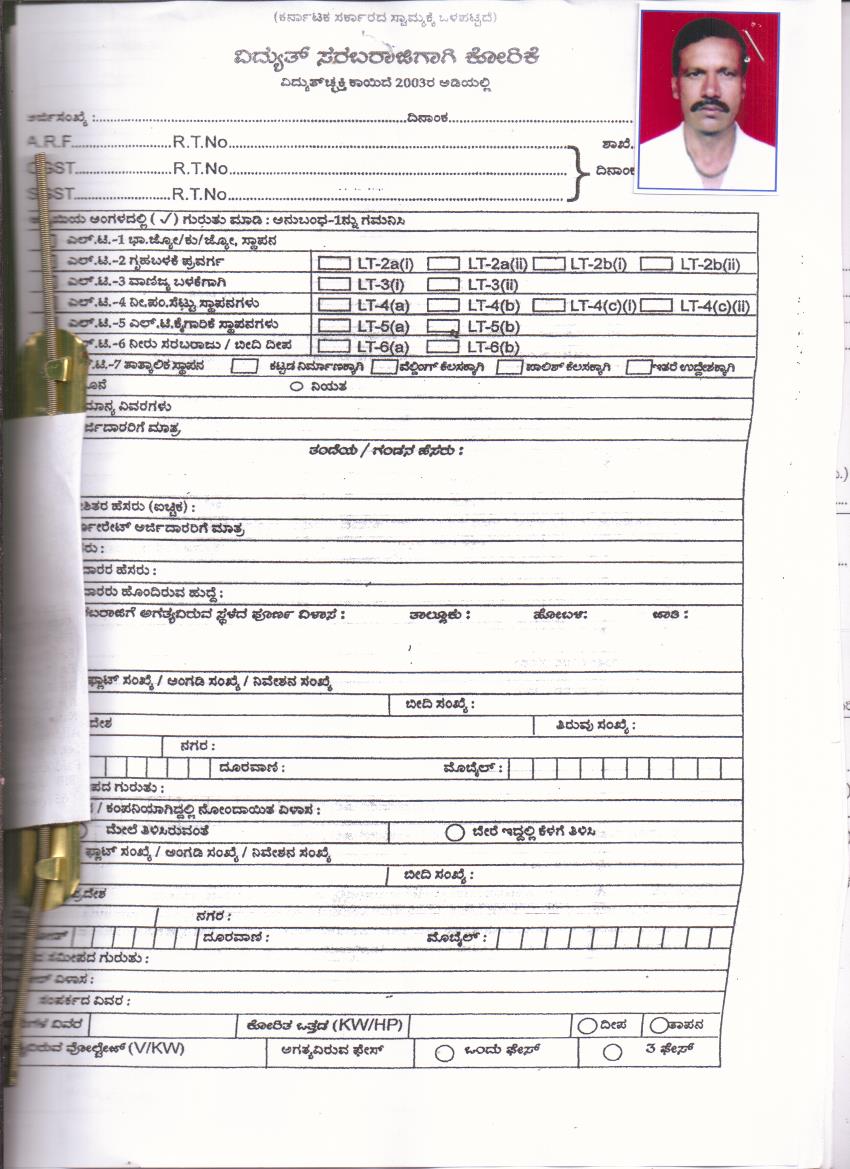 (ಕರ್ನಾಟಕ ಸರ್ಕಾರದ ಸ್ವಾಮ್ಯಕ್ಕೆ ಒಳಪಟ್ಟಿದೆ)
ವಿದ್ಯುತ್ ಸರಬರಾಜಿಗಾಗಿ ಕೋರಿಕೆ
ವಿದ್ಯುತ್‌ಚ್ಛಕ್ತಿ ಕಾಯಿದೆ 2003ರ ಅಡಿಯಲ್ಲಿ
ಅರ್ಜಿಸಂಖ್ಯೆ : ದಿನಾಂಕ
A.R.F R.T.No ಶಾಖೆ.
CGST R.T.No ದಿನಾಂಕ
SGST R.T.No
ಅಂಗಳದಲ್ಲಿ (✓) ಗುರುತು ಮಾಡಿ : ಅನುಬಂಧ-1ನ್ನು ಗಮನಿಸಿ
ಎಲ್.ಟಿ.-1 ಭಾ.ಜ್ಯೋ/ಕು/ಜ್ಯೋ, ಸ್ಥಾಪನ
ಎಲ್.ಟಿ.-2 ಗೃಹಬಳಕೆ ಪ್ರವರ್ಗ LT-2a(i) LT-2a(ii) LT-2b(i) LT-2b(ii)
ಎಲ್.ಟಿ.-3 ವಾಣಿಜ್ಯ ಬಳಕೆಗಾಗಿ LT-3(i) LT-3(ii)
ಎಲ್.ಟಿ.-4 ನೀ.ಪಂ.ಸೆಟ್ಟು ಸ್ಥಾಪನಗಳು LT-4(a) LT-4(b) LT-4(c)(i) LT-4(c)(ii)
ಎಲ್.ಟಿ.-5 ಎಲ್.ಟಿ.ಕೈಗಾರಿಕೆ ಸ್ಥಾಪನಗಳು LT-5(a) LT-5(b)
ಲ್.ಟಿ.-6 ನೀರು ಸರಬರಾಜು / ಬೀದಿ ದೀಪ LT-6(a) LT-6(b)
ಟಿ.-7 ತಾತ್ಕಾಲಿಕ ಸ್ಥಾಪನ ಕಟ್ಟಡ ನಿರ್ಮಾಣಕ್ಕಾಗಿ ವೆಲ್ಡಿಂಗ್ ಕೆಲಸಕ್ಕಾಗಿ ಪಾಲಿಶ್ ಕೆಲಸಕ್ಕಾಗಿ ಇತರೆ ಉದ್ದೇಶಕ್ಕಾಗಿ
ನಿಯತ
ಮಾನ್ಯ ವಿವರಗಳು
ರ್ಜಿದಾರರಿಗೆ ಮಾತ್ರ
ತಂದೆಯ / ಗಂಡನ ಹೆಸರು :
ಹೆಸರು (ಐಚ್ಛಿಕ) :
ರ್ಪೊರೇಟ್ ಅರ್ಜಿದಾರರಿಗೆ ಮಾತ್ರ
ರು :
ದಾರರ ಹೆಸರು :
ದಾರರು ಹೊಂದಿರುವ ಹುದ್ದೆ :
ಬರಾಜಿಗೆ ಅಗತ್ಯವಿರುವ ಸ್ಥಳದ ಪೂರ್ಣ ವಿಳಾಸ : ತಾಲ್ಲೂಕು : ಹೋಬಳಿ: ಜಾತಿ :
ಫ್ಲಾಟ್ ಸಂಖ್ಯೆ / ಅಂಗಡಿ ಸಂಖ್ಯೆ / ನಿವೇಶನ ಸಂಖ್ಯೆ
ಬೀದಿ ಸಂಖ್ಯೆ :
ದೇಶ ತಿರುವು ಸಂಖ್ಯೆ :
ನಗರ :
ದೂರವಾಣಿ : ಮೊಬೈಲ್ :
ಪದ ಗುರುತು :
/ ಕಂಪನಿಯಾಗಿದ್ದಲ್ಲಿ ನೋಂದಾಯಿತ ವಿಳಾಸ :
ಮೇಲೆ ತಿಳಿಸಿರುವಂತೆ ಬೇರೆ ಇದ್ದಲ್ಲಿ ಕೆಳಗೆ ತಿಳಿಸಿ
ಫ್ಲಾಟ್ ಸಂಖ್ಯೆ / ಅಂಗಡಿ ಸಂಖ್ಯೆ / ನಿವೇಶನ ಸಂಖ್ಯೆ
ಬೀದಿ ಸಂಖ್ಯೆ :
ಪ್ರದೇಶ
ನಗರ :
ದೂರವಾಣಿ : ಮೊಬೈಲ್ :
ಸಮೀಪದ ಗುರುತು :
ವಿಳಾಸ :
ಸಂಪರ್ಕದ ವಿವರ :
ವಿವರ ಕೋರಿತ ಒತ್ತಡ (KW/HP) ದೀಪ ತಾಪನ
ವಿರುವ ವೋಲ್ಟೇಜ್ (V/KW) ಅಗತ್ಯವಿರುವ ಫೇಸ್ ಒಂದು ಫೇಸ್ 3 ಫೇಸ್